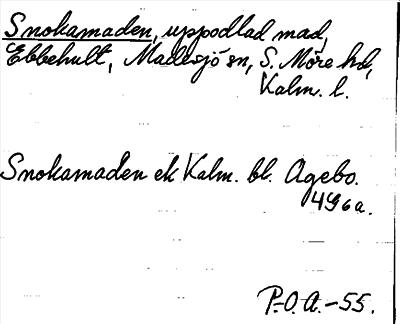 Snokamaden, uppodlad mad,
Ebbehult, Madesjö sn, S. Möre hd,
Kalm. l.
Snokamaden ek Kalm. bl. Agebo.
496a.
P.O.A.-55.